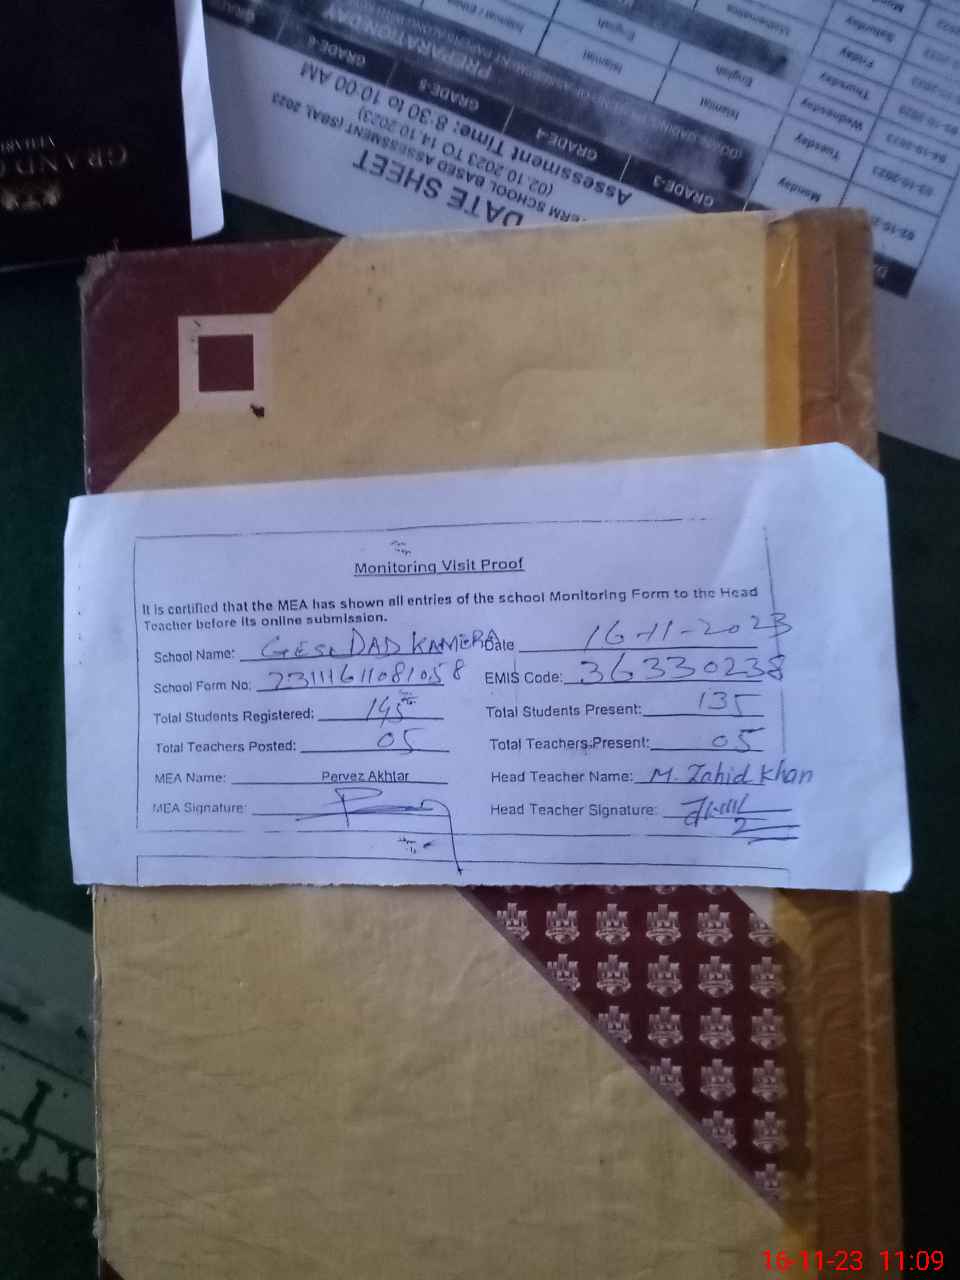 GRAND
DATE SHEET
TERM SCHOOL BASED ASSESSMENT (SBA), 2023
(02.10.2023 TO 14.10.2023)
Assessment Time: 8:30 to 10:00 AM
GRADE-3 GRADE-4 GRADE-5 GRADE-6
PREPARATION DAY
Monday Islamiat English Islamiat
Tuesday English
Wednesday
Thursday
Friday
Saturday
Monitoring Visit Proof
It is certified that the MEA has shown all entries of the school Monitoring Form to the Head
Teacher before its online submission.
School Name: GES DAD KAMERA Date 16-11-2023
School Form No: 23111611081058 EMIS Code: 36330238
Total Students Registered: 145 Total Students Present: 135
Total Teachers Posted: 05 Total Teachers Present: 05
MEA Name: Pervez Akhtar Head Teacher Name: M. Zahid Khan
MEA Signature: Head Teacher Signature:
16-11-23 11:09